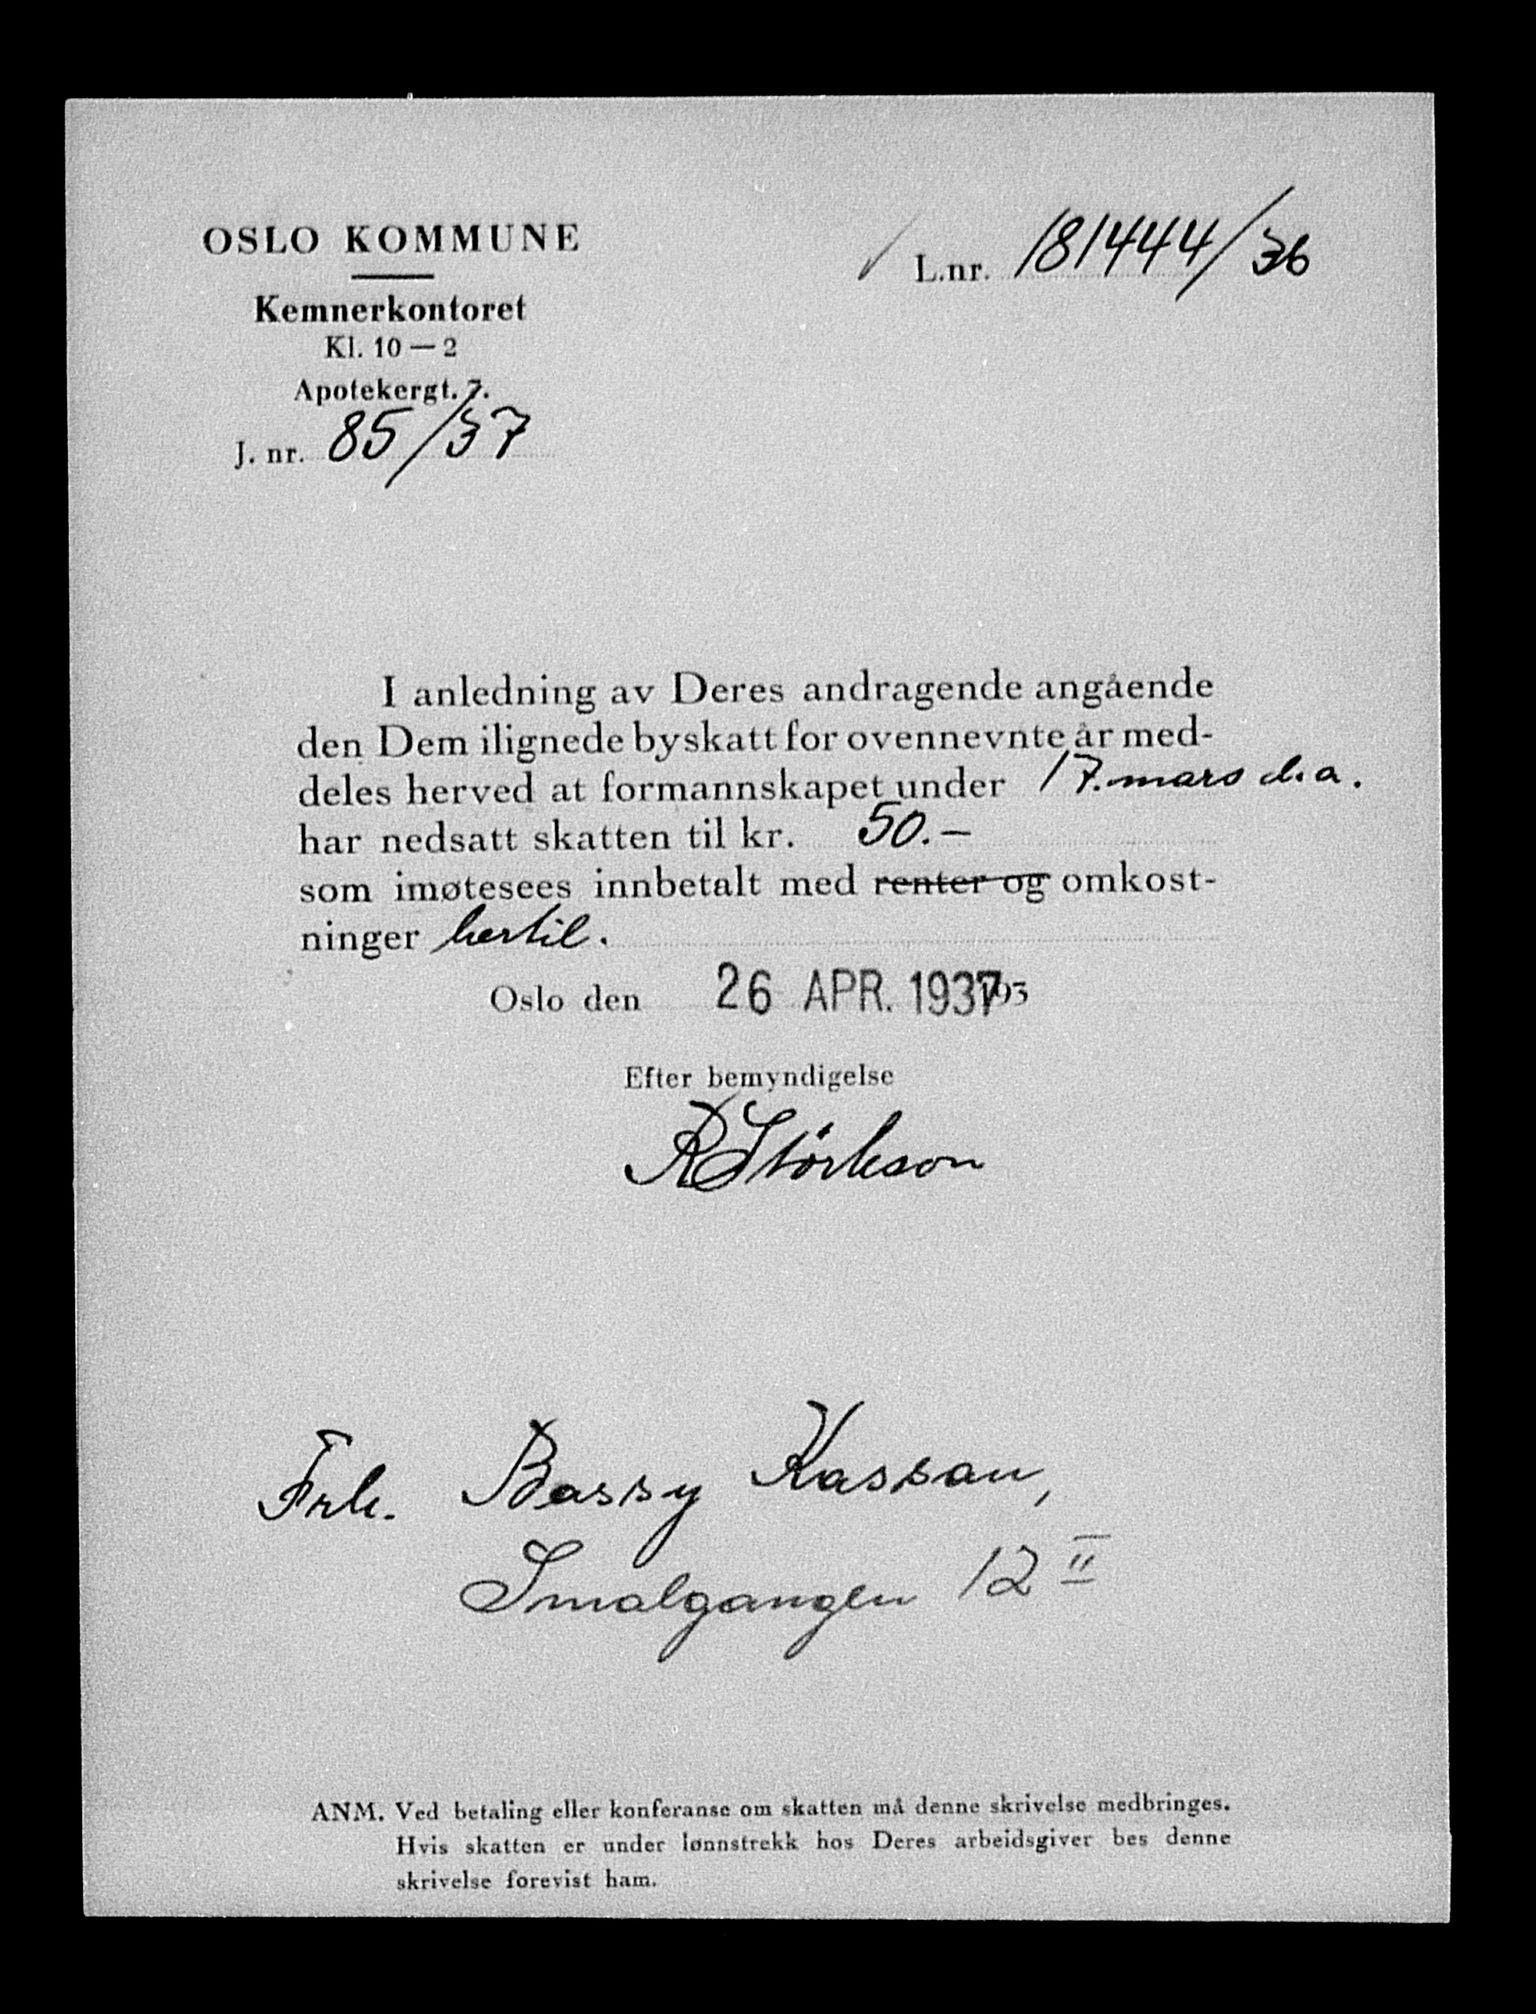 OSLO KOMMUNE
Kemnerkontoret
Kl. 10 — 2
Apotekergt. 7.
J. nr. 85/37
L.nr. 181444/36
I anledning av Deres andragende angående
den Dem ilignede byskatt for ovennevnte år med-
deles herved at formannskapet under 17. mars d.a.
har nedsatt skatten til kr. 50.—
som imøtesees innbetalt med renter og omkost-
ninger hertil.
Oslo den 26 APR. 1937 193
Efter bemyndigelse
R Störkson
Frk. Bassy Kassan,
Smalgangen 12 II
ANM. Ved betaling eller konferanse om skatten må denne skrivelse medbringes.
Hvis skatten er under lønnstrekk hos Deres arbeidsgiver bes denne
skrivelse forevist ham.